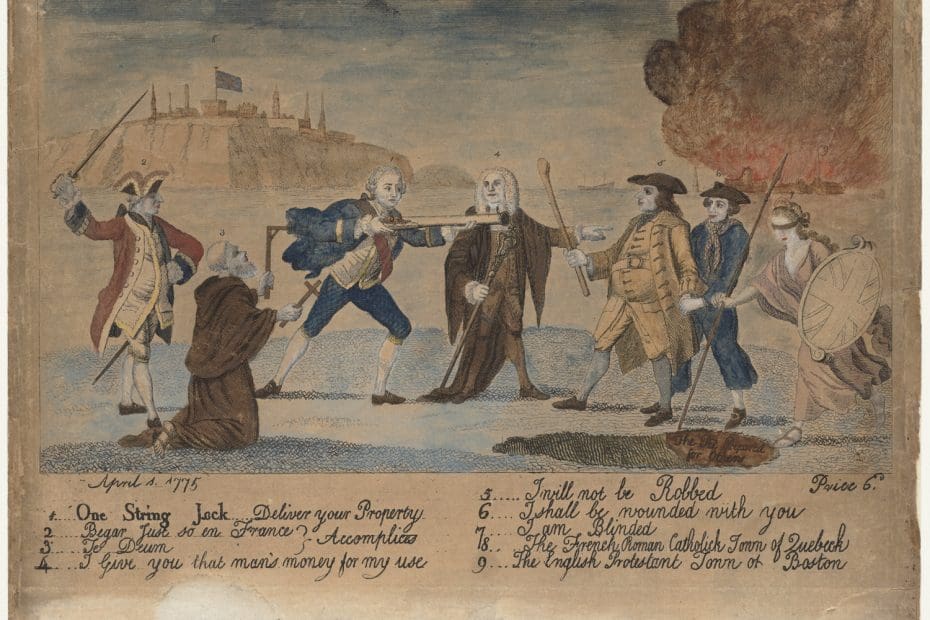 The Pit Prepared
for Others
April 1. 1775
Price 6.d
1....One String Jack....Deliver your Property
2.....Begar Just so en France } Accomplices
3.....Te Deum
4.....I Give you that man's money for my use
5.....I will not be Robbed
6.....I shall be wounded with you
7.....I am Blinded
8...The French Roman Catholick Town of Quebeck
9...The English Protestant Town of Boston